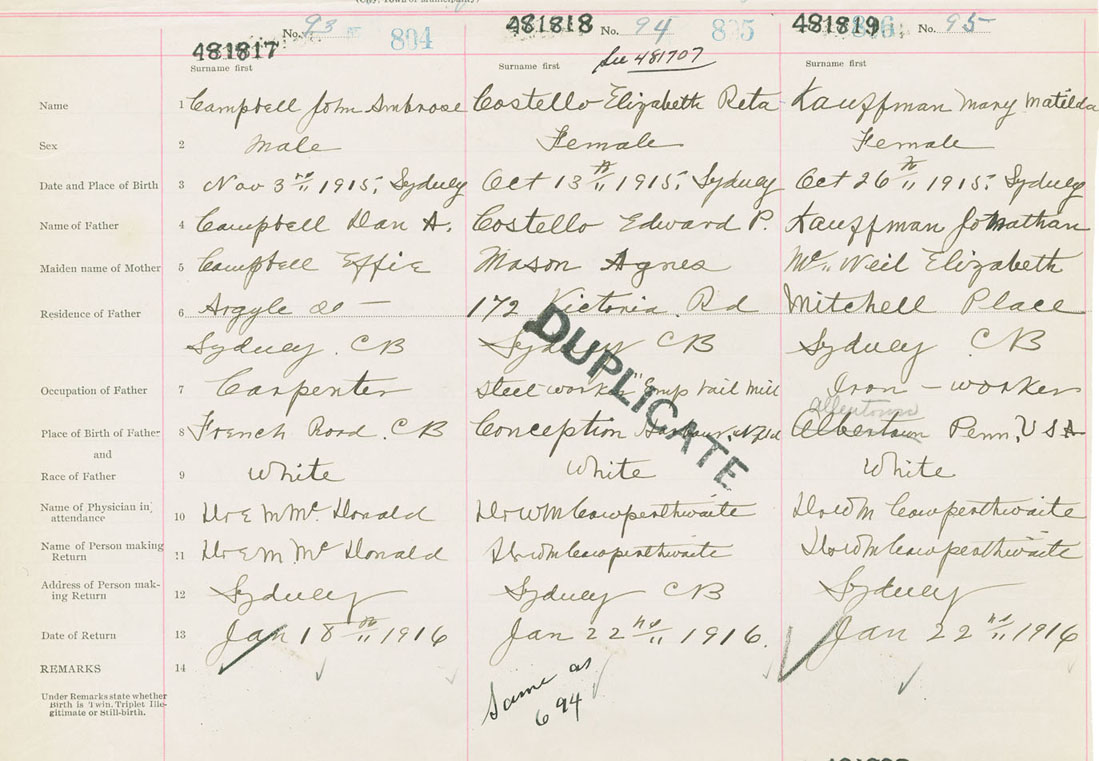 481817 No. 93 804
481818 No. 94 805
481819 No. 95
Surname first
Surname first See 481707
Surname first
Name 1 Campbell John Ambrose Costello Elizabeth Reta Kauffman Mary Matilda
Sex 2 Male Female Female
Date and Place of Birth 3 Nov 3rd 1915, Sydney Oct 13th 1915, Sydney Oct 26th 1915, Sydney
Name of Father 4 Campbell Dan A. Costello Edward P. Kauffman Jonathan
Maiden name of Mother 5 Campbell Effie Mason Agnes Mc Neil Elizabeth
Residence of Father 6 Argyle St — 172 Victoria Rd Mitchell Place
Sydney. CB Sydney CB Sydney CB
Occupation of Father 7 Carpenter Steel worker "Emp rail Mill Iron - worker
Allentown
Place of Birth of Father 8 French Road. CB Conception Harbour, Nfld Albertown Penn, USA
and
Race of Father 9 White White White
Name of Physician in attendance 10 Dr E M Mc Donald Dr WM Cowperthwaite Dr WM Cowperthwaite
Name of Person making Return 11 Dr E. M. Mc Donald Dr WM Cowperthwaite Dr WM Cowperthwaite
Address of Person making Return 12 Sydney Sydney CB Sydney
Date of Return 13 Jan 18th 1916 Jan 22nd 1916. Jan 22nd 1916
REMARKS 14
Under Remarks state whether
Birth is Twin, Triplet Ille-
gitimate or Still-birth.
Same as
694
DUPLICATE